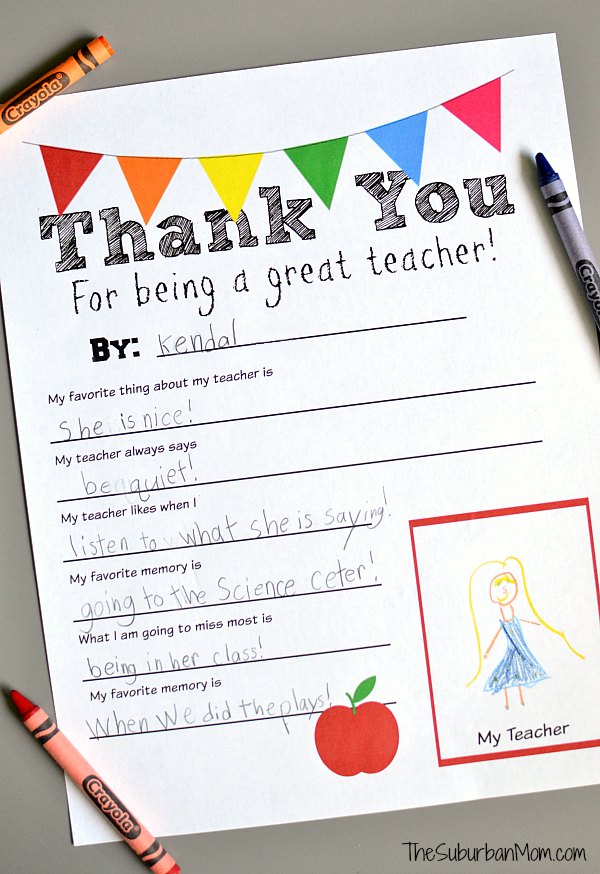 Crayola
Thank You
For being a great teacher!
Crayola
By: Kendal
My favorite thing about my teacher is
She is nice!
My teacher always says
be quiet!
My teacher likes when I
listen to what she is saying!
My favorite memory is
going to the Science Ceter!
What I am going to miss most is
being in her class!
My favorite memory is
When We did the plays!
My Teacher
Crayola
TheSuburbanMom.com